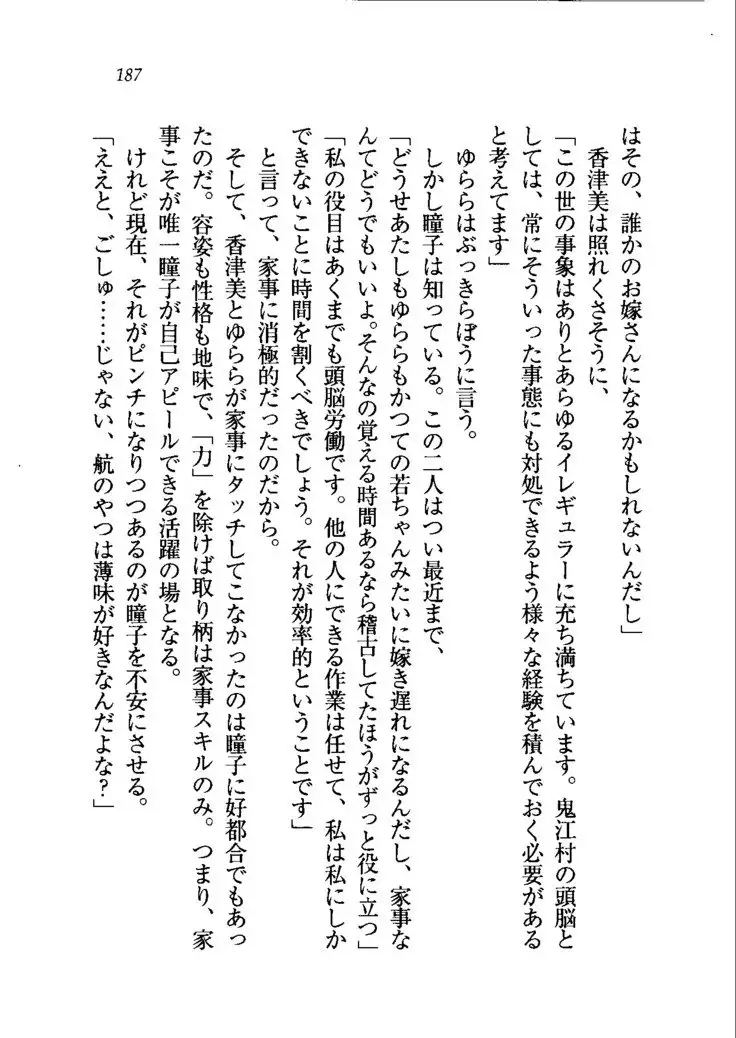 187
はその、誰かのお嫁さんになるかもしれないんだし」
香津美は照れくさそうに、
「この世の事象はありとあらゆるイレギュラーに充ち満ちています。鬼江村の頭脳と
しては、常にそういった事態にも対処できるよう様々な経験を積んでおく必要がある
と考えてます」
ゆららはぶっきらぼうに言う。
しかし瞳子は知っている。この二人はつい最近まで、
「どうせあたしもゆららもかつての若ちゃんみたいに嫁き遅れになるんだし、家事な
んてどうでもいいよ。そんなの覚える時間あるなら稽古してたほうがずっと役に立つ」
「私の役目はあくまでも頭脳労働です。他の人にできる作業は任せて、私は私にしか
できないことに時間を割くべきでしょう。それが効率的ということです」
と言って、家事に消極的だったのだから。
そして、香津美とゆららが家事にタッチしてこなかったのは瞳子に好都合でもあっ
たのだ。容姿も性格も地味で、「力」を除けば取り柄は家事スキルのみ。つまり、家
事こそが唯一瞳子が自己アピールできる活躍の場となる。
けれど現在、それがピンチになりつつあるのが瞳子を不安にさせる。
「ええと、ごしゅ……じゃない、航のやつは薄味が好きなんだよな？」